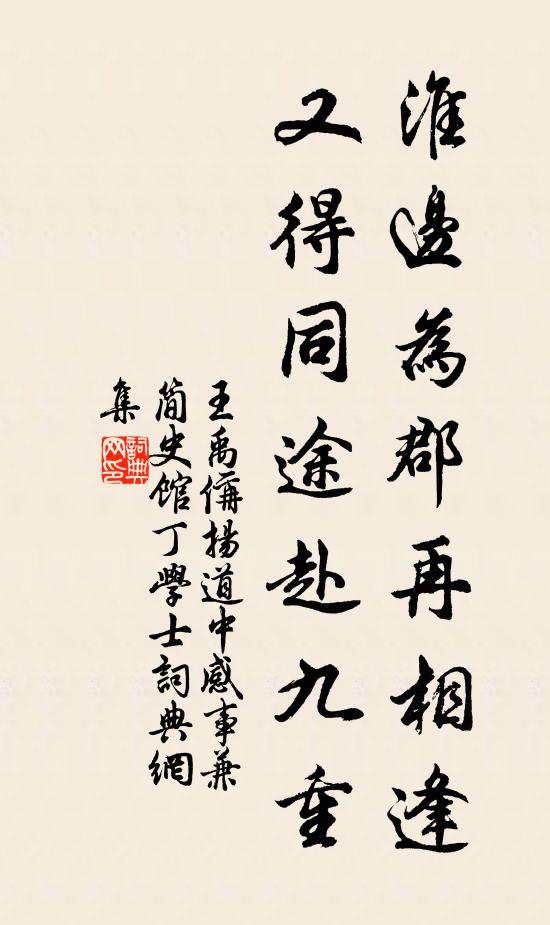 淮邊為郡再相逢
又得同途赴九重
王禹偁揚道中感事兼
简史館丁學士詞典網
集
詞典網印